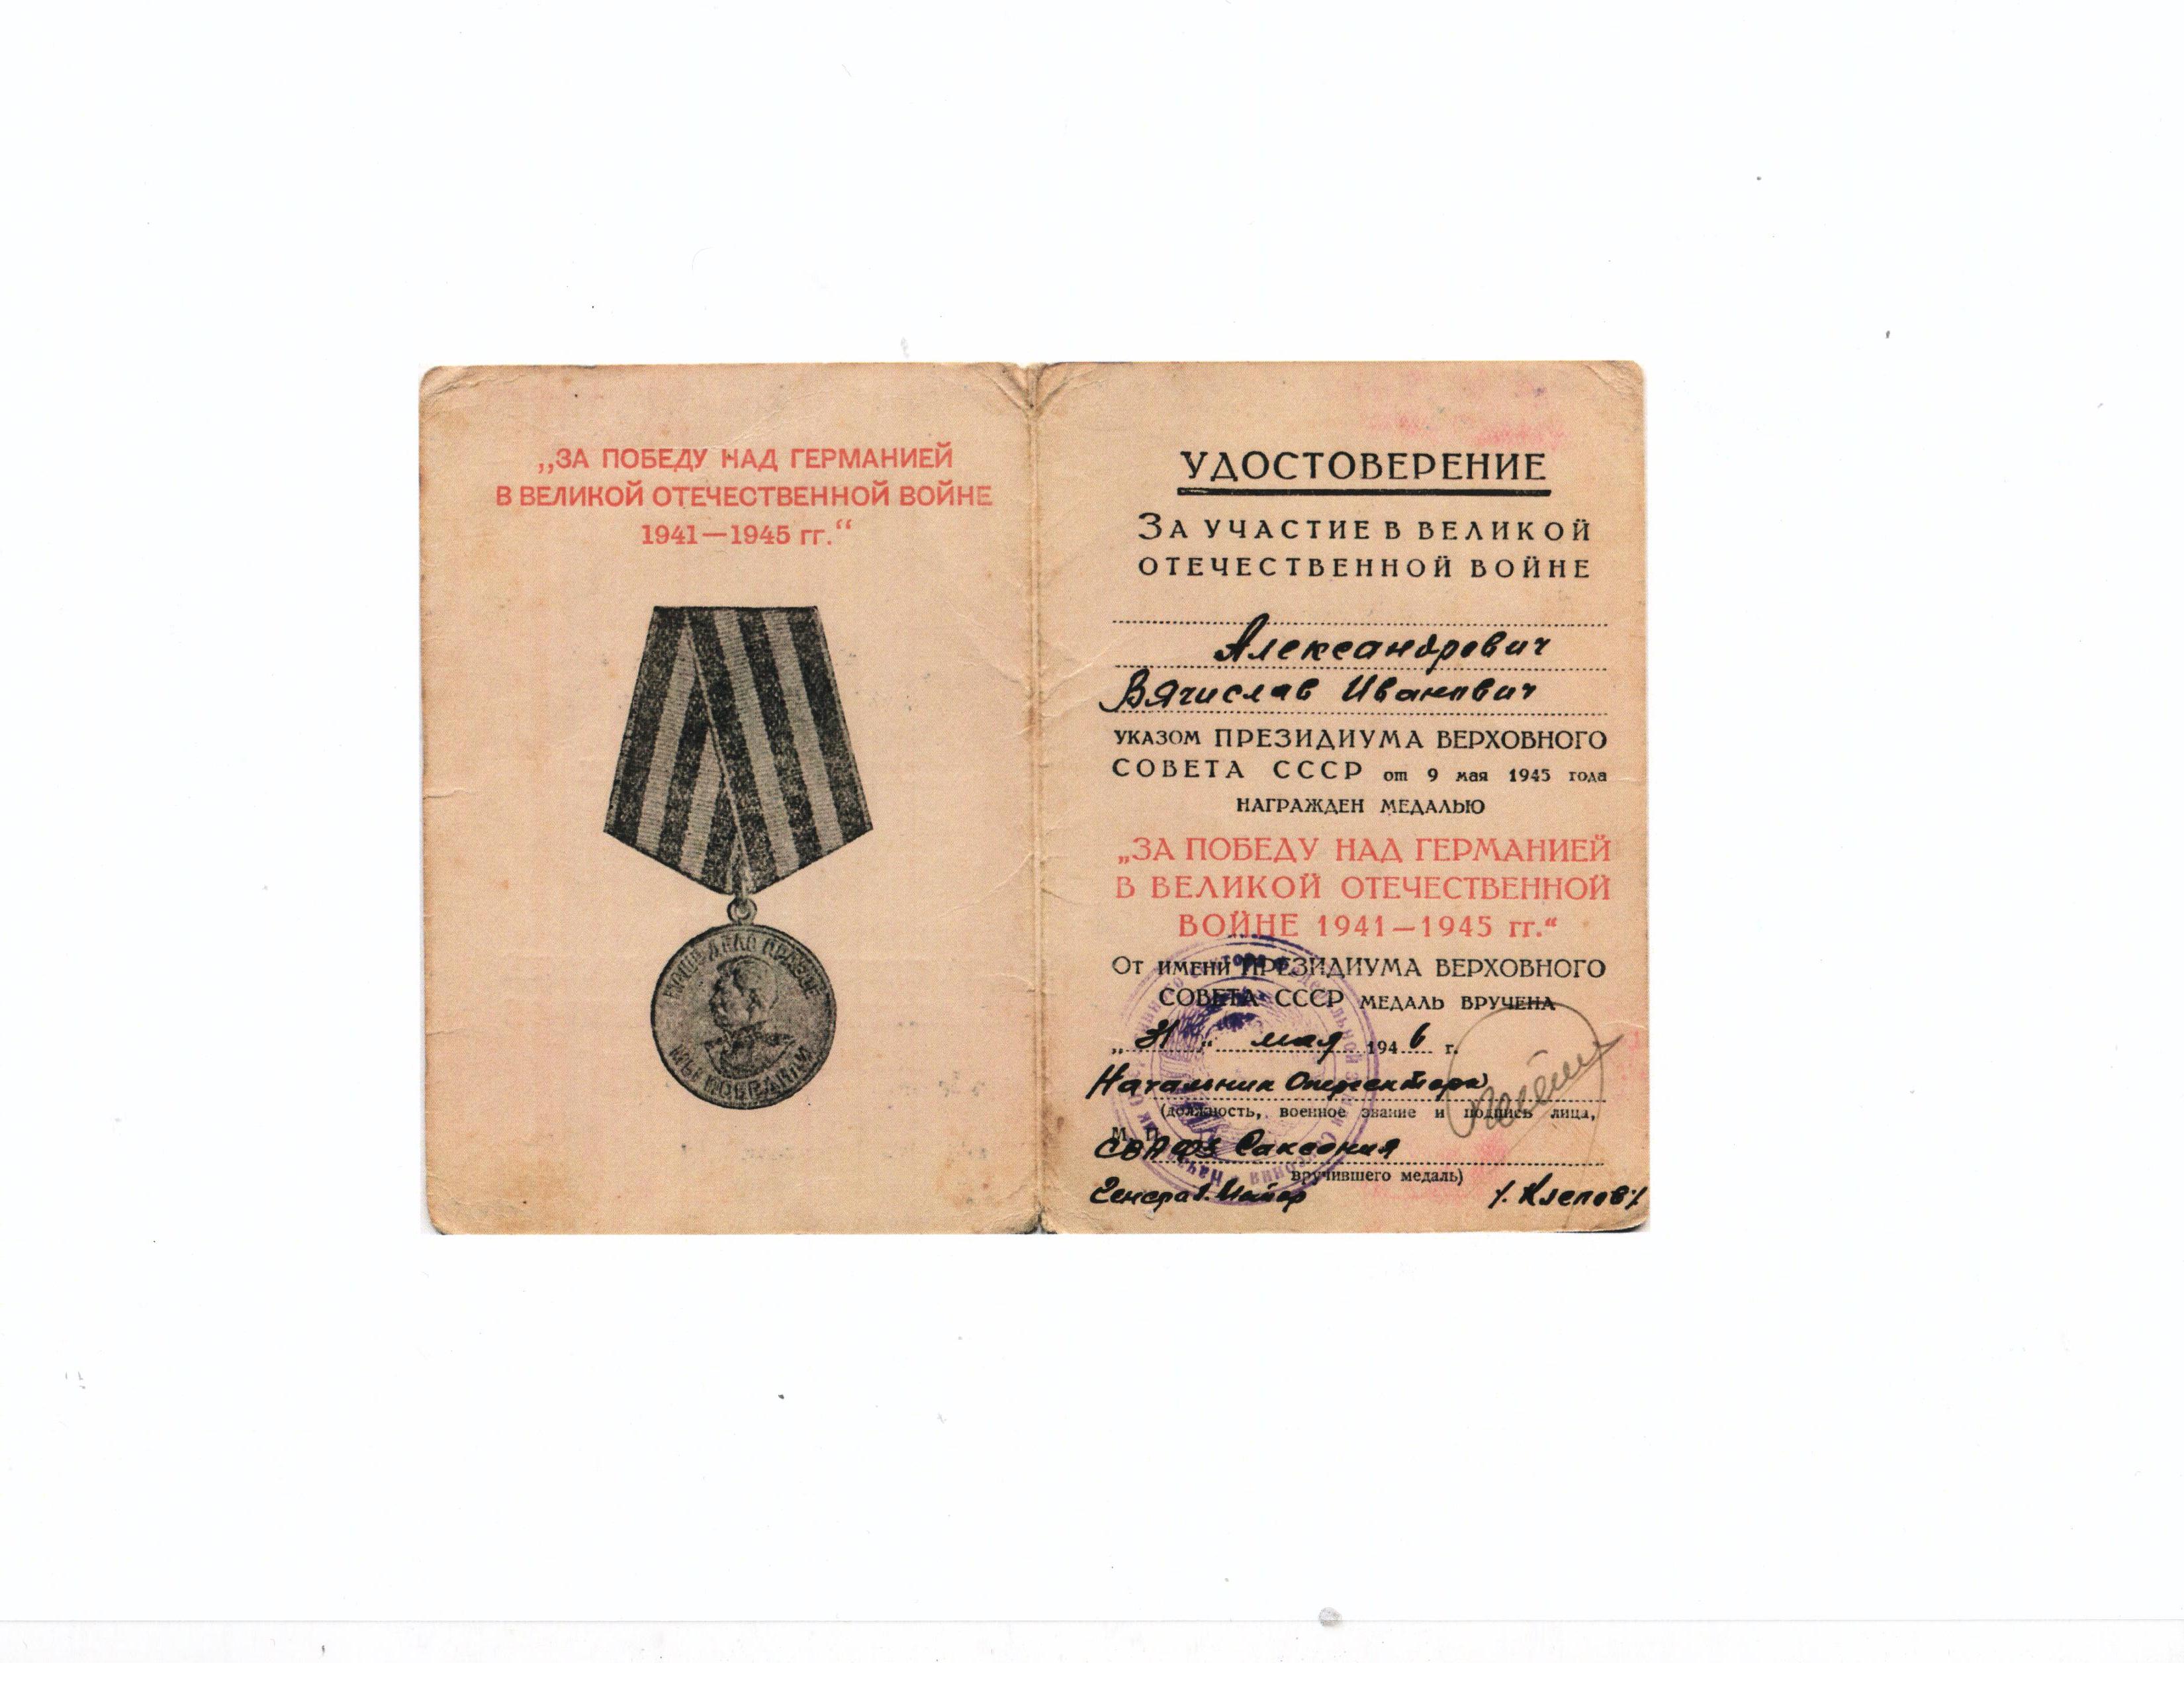 „ЗА ПОБЕДУ НАД ГЕРМАНИЕЙ
В ВЕЛИКОЙ ОТЕЧЕСТВЕННОЙ ВОЙНЕ
1941—1945 гг.“
НАШЕ ДЕЛО ПРАВОЕ
МЫ ПОБЕДИЛИ
УДОСТОВЕРЕНИЕ
ЗА УЧАСТИЕ В ВЕЛИКОЙ
ОТЕЧЕСТВЕННОЙ ВОЙНЕ
Александрович
Вячислав Иванович
УКАЗОМ ПРЕЗИДИУМА ВЕРХОВНОГО
СОВЕТА СССР от 9 мая 1945 года
НАГРАЖДЕН МЕДАЛЬЮ
„ЗА ПОБЕДУ НАД ГЕРМАНИЕЙ
В ВЕЛИКОЙ ОТЕЧЕСТВЕННОЙ
ВОЙНЕ 1941—1945 гг.“
ОТ ИМЕНИ ПРЕЗИДИУМА ВЕРХОВНОГО
СОВЕТА СССР МЕДАЛЬ ВРУЧЕНА
мая 1946 г.
Начальник Опер сектора
(должность, военное звание и подпись лица,
М. П.
СВА ФЗ Саксония
вручившего медаль)
Генерал. Майор /. Клепов/